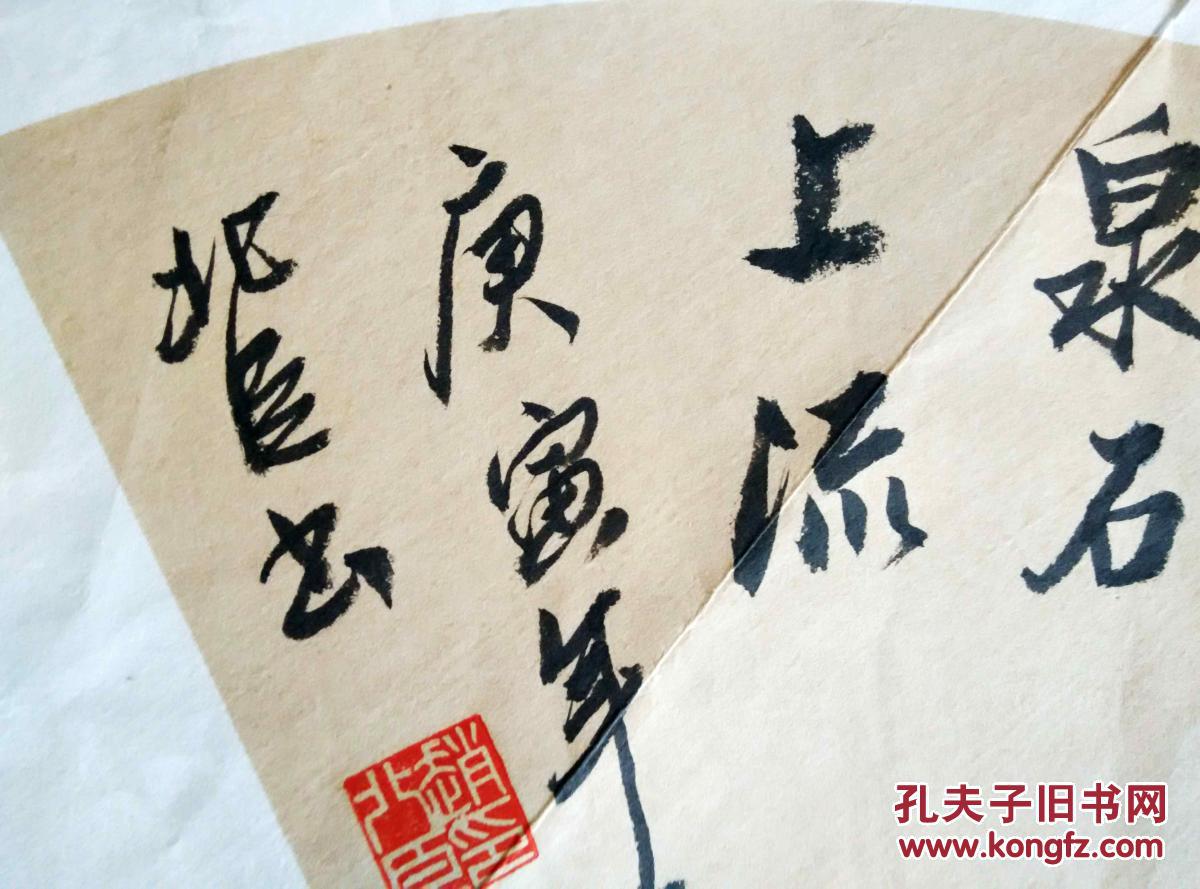 泉石
上流
庚寅年
书
孔夫子旧书网
www.kongfz.com